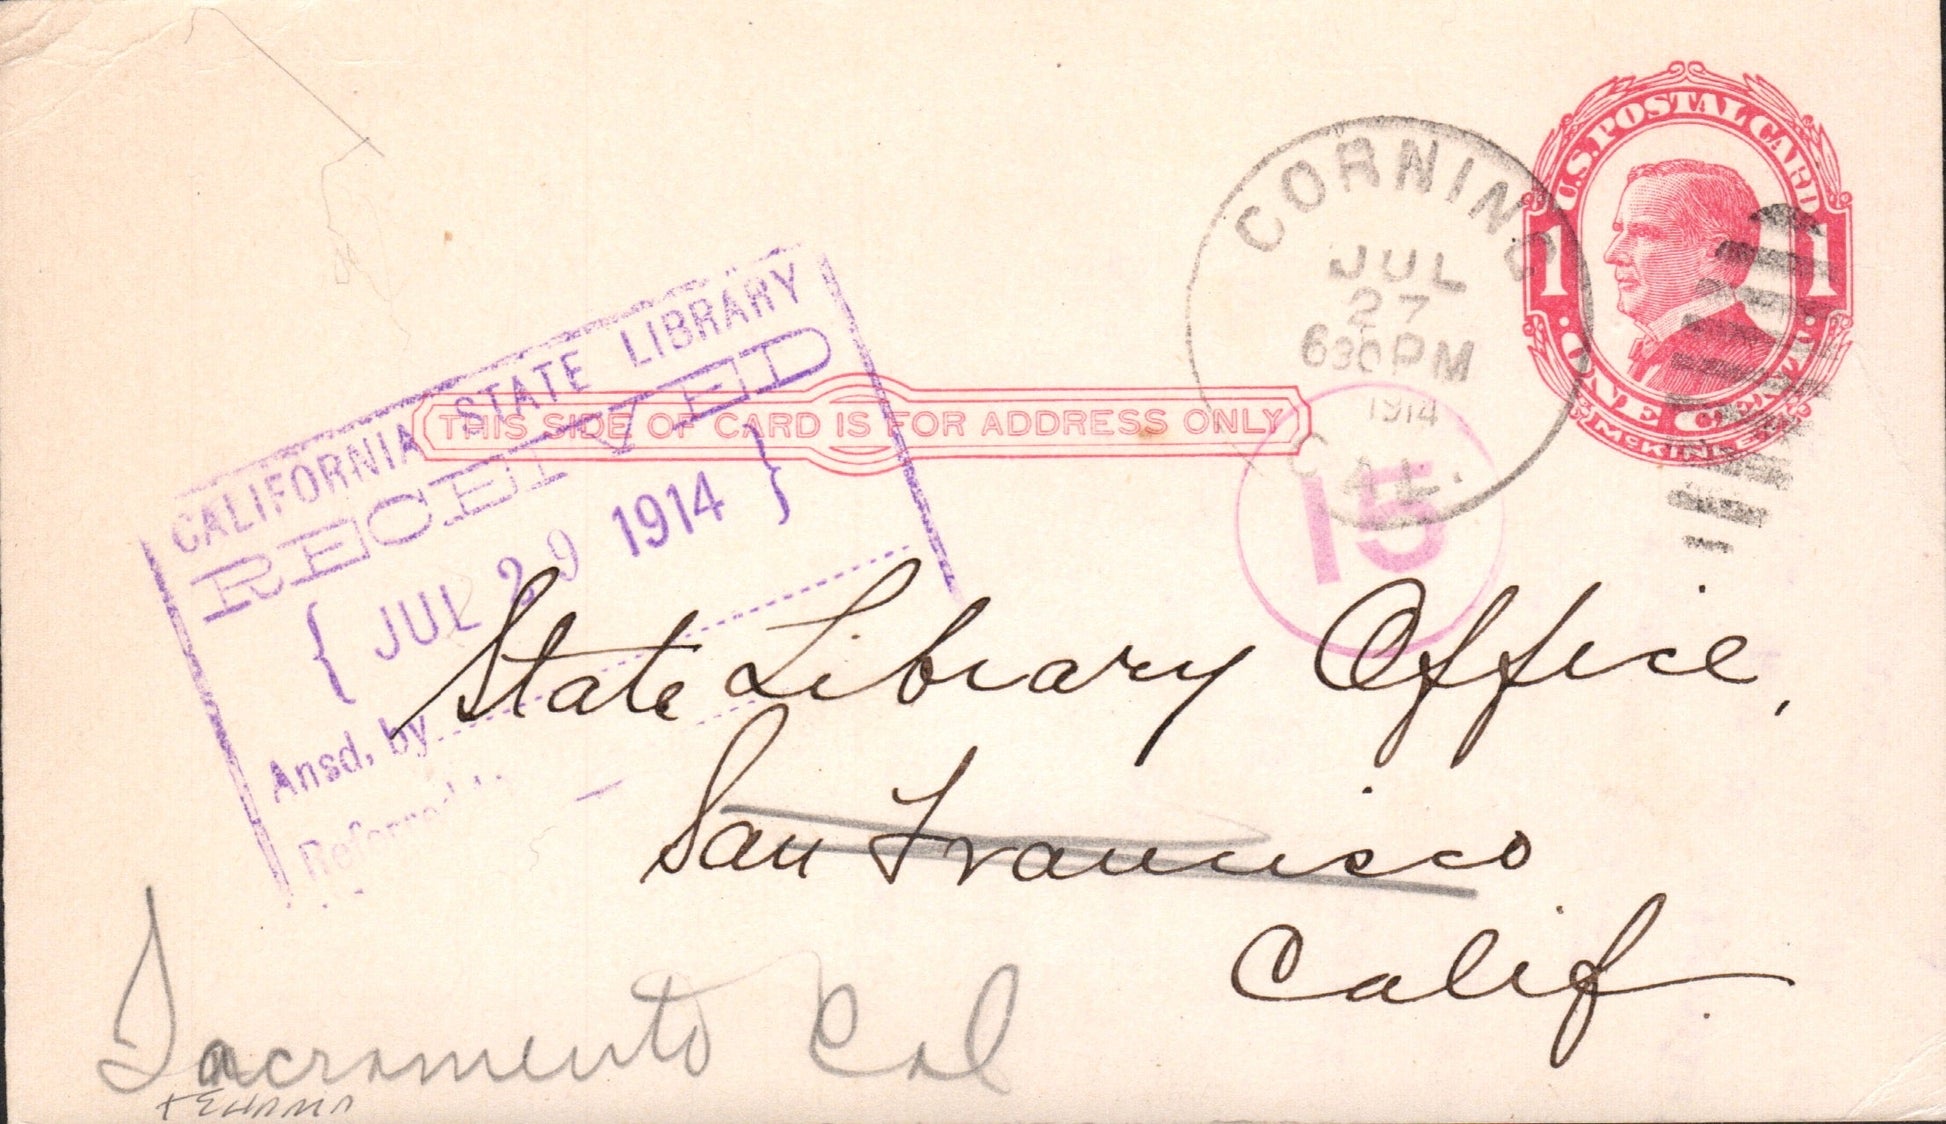 U.S. POSTAL CARD
1 1
· ONE CENT ·
McKINLEY
CORNING
JUL
27
630 PM
1914
CAL.
THIS SIDE OF CARD IS FOR ADDRESS ONLY
15
CALIFORNIA STATE LIBRARY
RECEIVED
{ JUL 29 1914 }
Ansd. by
State Library Office,
San Francisco
Calif
Sacramento Cal
TEHAMA